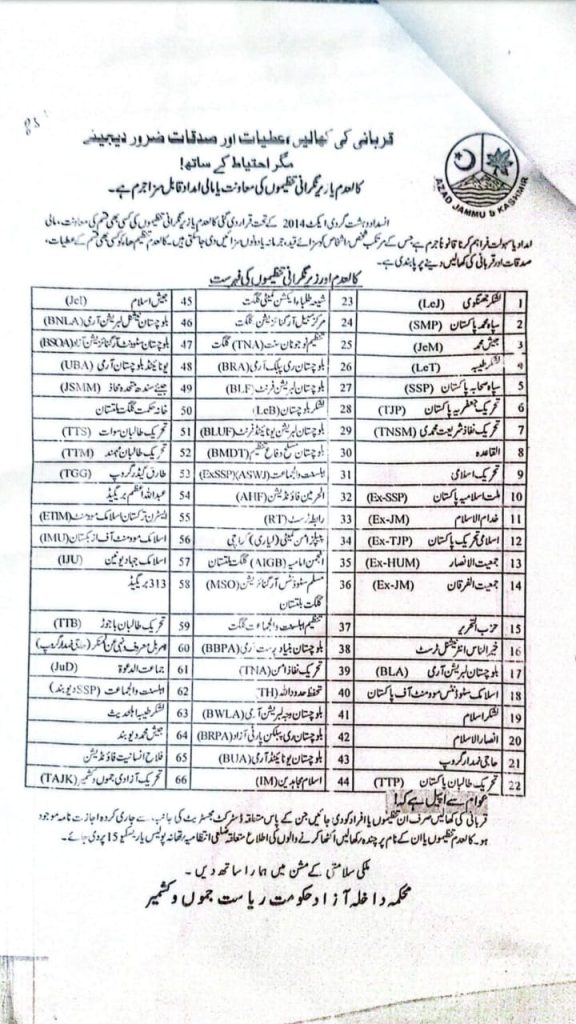 قربانی کی کھالیں، عطیات اور صدقات ضرور دیجیئے
مگر احتیاط کے ساتھ!
کالعدم یا زیر نگرانی تنظیموں کی معاونت یا مالی امداد قابل سزا جرم ہے۔
AZAD JAMMU & KASHMIR
انسداد دہشت گردی ایکٹ 2014 کے تحت قرار دی گئی کالعدم یا زیر نگرانی تنظیموں کی کسی بھی قسم کی معاونت، مالی
امداد یا سہولت فراہم کرنا قانوناً جرم ہے، جس کے مرتکب شخص / اشخاص کو سزائے قید، جرمانہ یا دونوں سزائیں دی جا سکتی ہیں۔ کالعدم تنظیم کو کسی بھی قسم کے عطیات،
صدقات اور قربانی کی کھالیں دینے پر پابندی ہے۔
کالعدم اور زیر نگرانی تنظیموں کی فہرست
1 لشکر جھنگوی (LeJ) 23 شیعہ طلباء ایکشن کمیٹی گلگت 45 جیش اسلام (JeI)
2 سپاہ محمد پاکستان (SMP) 24 مرکز سبیل آرگنائزیشن گلگت 46 بلوچستان نیشنل لبریشن آرمی (BNLA)
3 جیش محمد (JeM) 25 تنظیم نوجوانان سنت (TNA) گلگت 47 بلوچستان سٹوڈنٹ آرگنائزیشن آزاد (BSOA)
4 لشکر طیبہ (LeT) 26 بلوچستان ری پبلک آرمی (BRA) 48 یونائیٹڈ بلوچ آرمی (UBA)
5 سپاہ صحابہ پاکستان (SSP) 27 بلوچستان لبریشن فرنٹ (BLF) 49 جیئے سندھ متحدہ محاذ (JSMM)
6 تحریک جعفریہ پاکستان (TJP) 28 لشکر بلوچستان (LeB) 50 خانہ حکمت گلگت بلتستان
7 تحریک نفاذ شریعت محمدی (TNSM) 29 بلوچستان لبریشن یونائیٹڈ فرنٹ (BLUF) 51 تحریک طالبان سوات (TTS)
8 القاعدہ 30 بلوچستان مسلح دفاع تنظیم (BMDT) 52 تحریک طالبان مہمند (TTM)
9 تحریک اسلامی 31 اہلسنت والجماعت (ASWJ) (ExSSP) 53 طارق گیڈر گروپ (TGG)
10 ملت اسلامیہ پاکستان (Ex-SSP) 32 الحرمین فاؤنڈیشن (AHF) 54 عبداللہ اعظم بریگیڈ
11 خدام الاسلام (Ex-JM) 33 رابطہ ٹرسٹ (RT) 55 ایسٹرن ترکستان اسلامک موومنٹ (ETIM)
12 اسلامی تحریک پاکستان (Ex-TJP) 34 پیپلز امن کمیٹی (لیاری) کراچی 56 اسلامک موومنٹ آف ازبکستان (IMU)
13 جمعیت الانصار (Ex-HUM) 35 انجمن امامیہ (AIGB) گلگت بلتستان 57 اسلامک جہاد یونین (IJU)
14 جمعیت الفرقان (Ex-JM) 36 مسلم سٹوڈنٹس آرگنائزیشن (MSO) گلگت بلتستان 58 313 بریگیڈ
15 حزب التحریر 37 تنظیم اہلسنت والجماعت گلگت 59 تحریک طالبان باجوڑ (TTB)
16 خیر الناس انٹرنیشنل ٹرسٹ 38 بلوچستان بنیاد پرست آرمی (BBPA) 60 امر بالمعروف و نہی عن المنکر (حاجی نامدار گروپ)
17 بلوچستان لبریشن آرمی (BLA) 39 تحریک نفاذ امن (TNA) 61 جماعت الدعوۃ (JuD)
18 اسلامک سٹوڈنٹس موومنٹ آف پاکستان 40 تحفظ حدود اللہ (TH) 62 اہلسنت والجماعت (SSP دیوبند)
19 لشکر اسلام 41 بلوچستان واجہ لبریشن آرمی (BWLA) 63 لشکر طیبہ اہلحدیث
20 انصار الاسلام 42 بلوچستان ری پبلکن پارٹی آزاد (BRPA) 64 جیش محمد دیوبند
21 حاجی نامدار گروپ 43 بلوچستان یونائیٹڈ آرمی (BUA) 65 فلاح انسانیت فاؤنڈیشن
22 تحریک طالبان پاکستان (TTP) 44 اسلام مجاہدین (IM) 66 تحریک آزادی جموں و کشمیر (TAJK)
عوام سے اپیل ہے کہ!
قربانی کی کھالیں صرف ان تنظیموں یا افراد کو دی جائیں جن کے پاس متعلقہ ڈسٹرکٹ مجسٹریٹ کی جانب سے جاری کردہ اجازت نامہ موجود
ہو۔ کالعدم تنظیموں یا ان کے نام پر چندہ / کھالیں اکٹھا کرنے والوں کی اطلاع متعلقہ ضلعی انتظامیہ / تھانہ پولیس یا ریسکیو 15 پر دی جائے۔
ملکی سلامتی کے مشن میں ہمارا ساتھ دیں۔
محکمہ داخلہ آزاد حکومت ریاست جموں و کشمیر